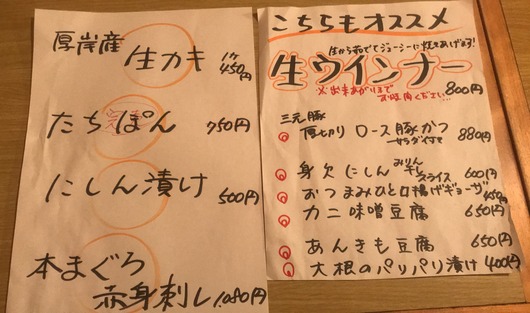 厚岸産
生カキ 1ケ 450円
たちぽん 750円
にしん漬け 500円
本まぐろ
赤身刺し 1,080円
こちらもオススメ
生から茹でてジューシーに焼きあげます!
生ウインナー
800円
三元豚
厚切り ロース豚かつ 880円
サラダ付き
身欠にしん みりん干し スライス 600円
おつまみひと口揚げギョーザ 450円
カニ味噌豆腐 650円
あんきも豆腐 650円
大根のパリパリ漬け 400円